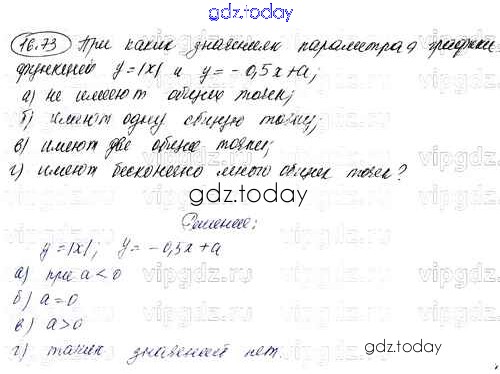 gdz.today
16.73 При каких значениях параметра a графики
функций y=|x| и y=-0,5x+a;
а) не имеют общих точек;
б) имеют одну общую точку;
в) имеют две общие точки;
г) имеют бесконечно много общих точек?
gdz.today
Решение:
y=|x|; y=-0,5x+a
а) при a<0
б) a=0
в) a>0
г) таких значений нет.
gdz.today